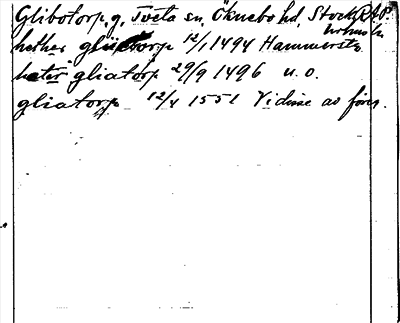 Glibotorp, g, Tveta sn, Öknebo hd, Stockh. RAP.
hether glüttorp 12/1 1494 Hammersta
heter gliatorp 29/9 1496 u.o.
gliatorp 12/4 1551 Vidisse av föreg.